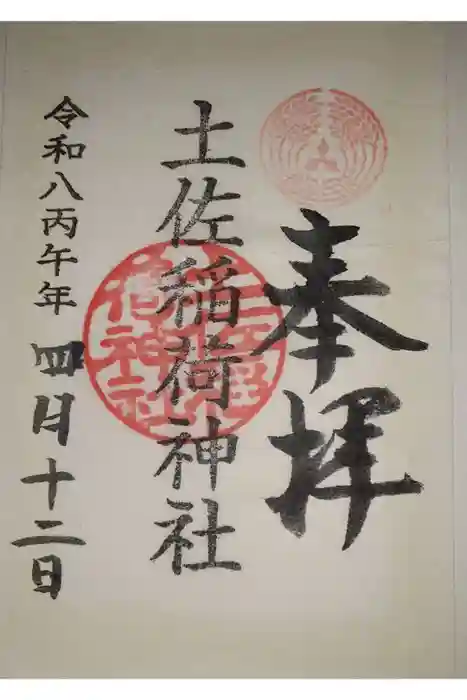 奉拝
土佐稲荷神社
土佐稲荷神社
令和八丙午年四月十二日